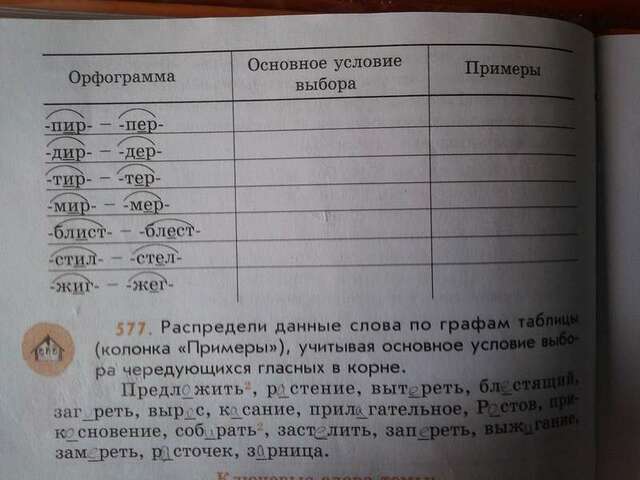 Орфограмма Основное условие выбора Примеры
-пир- – -пер-
-дир- – -дер-
-тир- – -тер-
-мир- – -мер-
-блист- – -блест-
-стил- – -стел-
-жиг- – -жег-
577. Распредели данные слова по графам таблицы
(колонка «Примеры»), учитывая основное условие выбо-
ра чередующихся гласных в корне.
Предложить², растение, вытереть, блестящий,
заг_реть, вырос, касание, прилагательное, Ростов, при-
косновение, собирать², застелить, запереть, выжигание,
замереть, росточек, зарница.
Ключевые слова темы: